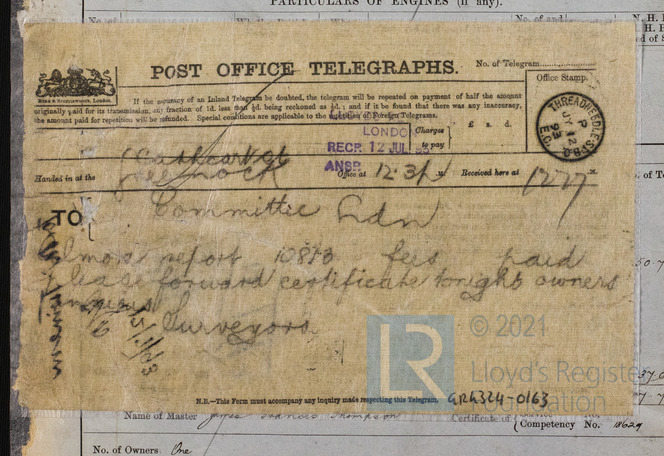 PARTICULARS OF ENGINES (if any).
POST OFFICE TELEGRAPHS.
No. of Telegram
Office Stamp.
If the accuracy of an Inland Telegram be doubted, the telegram will be repeated on payment of half the amount
originally paid for its transmission, any fraction of 1d. less than ½d. being reckoned as ½d.; and if it be found that there was any inaccuracy,
the amount paid for repetition will be refunded. Special conditions are applicable to the repetition of Foreign Telegrams.
THREADNEEDLE ST. B.O.
P
JY 12
93
E.C.
LONDO
RECR 12 JUL
ANSR
Charges
to pay
£ s. d.
Cathcart St
Handed in at the Greenock Office at 12.31 M. Received here at 1277
TO
Committee Ldn
Elmore report 10813 fees paid
please forward certificate tonight owners
anxious
Surveyors
© 2021
LR
Lloyd's Register
Foundation
N.B.—This Form must accompany any inquiry made respecting this Telegram.
GRK324-0163
Name of Master James Francis Thompson
Certificate of
Competency No. 18629
No. of Owners One